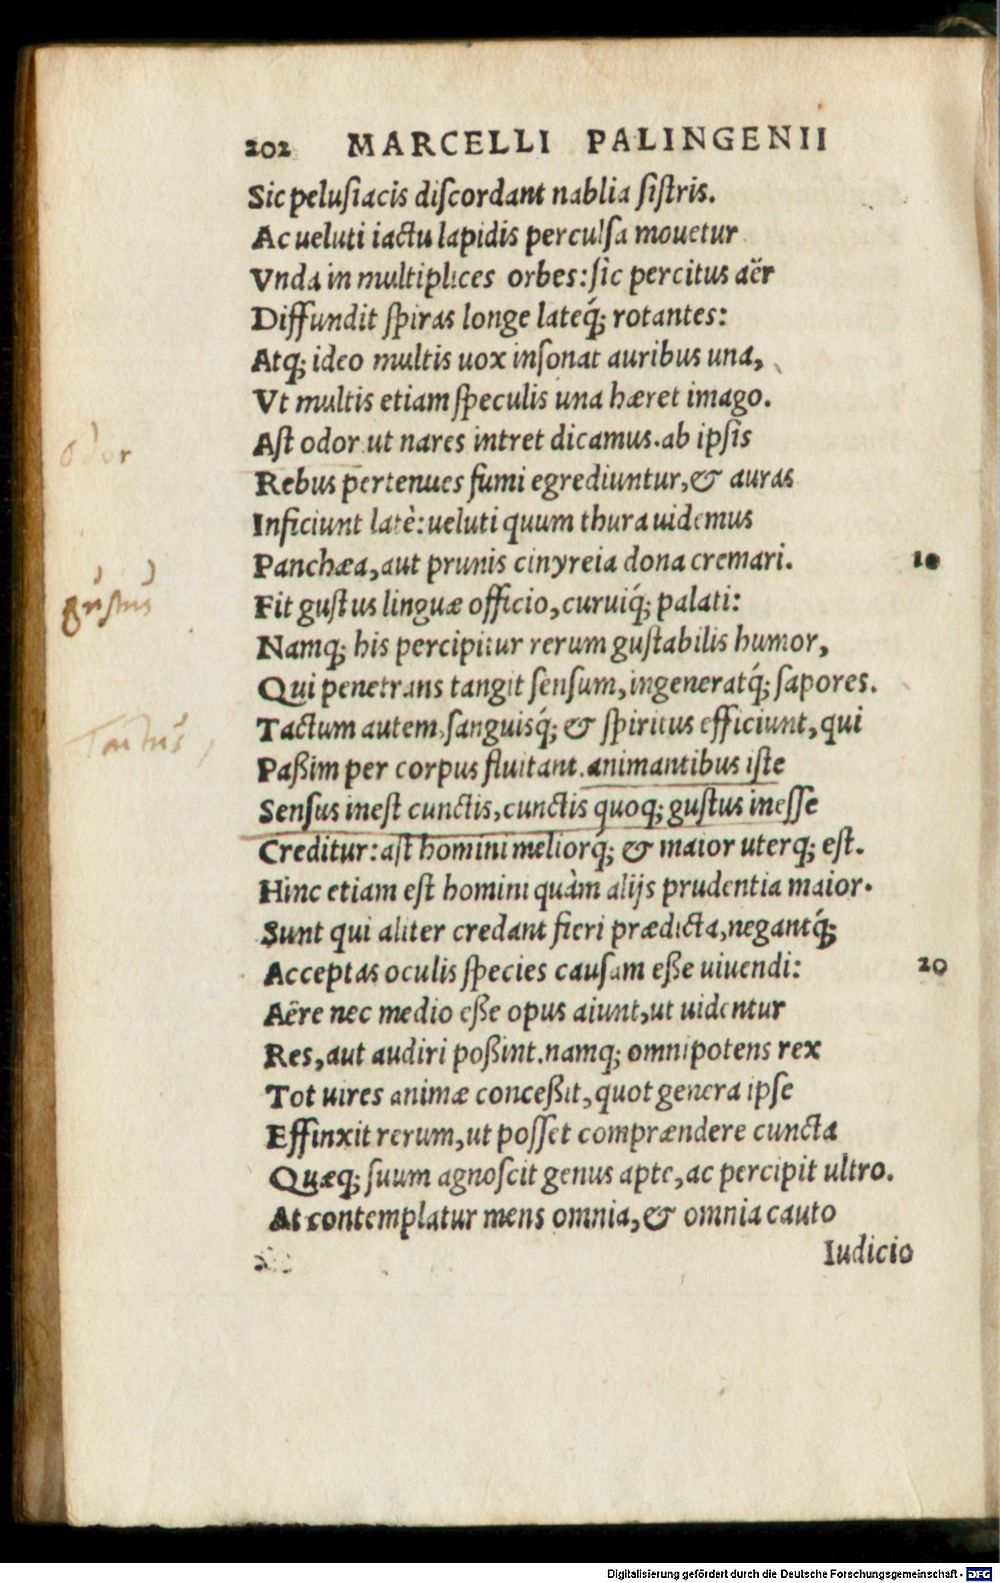 202 MARCELLI PALINGENII
Sic pelusiacis discordant nablia sistris.
Ac ueluti iactu lapidis perculsa mouetur
Vnda in multiplices orbes: sic percitus aër
Diffundit spiras longe lateq́; rotantes:
Atq; ideo multis uox insonat auribus una,
Vt multis etiam speculis una hæret imago.
odor
Ast odor ut nares intret dicamus. ab ipsis
Rebus pertenues fumi egrediuntur, & auras
Inficiunt latè: ueluti quum thura uidemus
Panchæa, aut prunis cinyreia dona cremari. 10
gustus
Fit gustus linguæ officio, curuiq́; palati:
Namq; his percipitur rerum gustabilis humor,
Qui penetrans tangit sensum, ingeneratq́; sapores.
Tactus
Tactum autem, sanguisq́; & spiritus efficiunt, qui
Paßim per corpus fluitant. animantibus iste
Sensus inest cunctis, cunctis quoq; gustus inesse
Creditur: ast homini meliorq́; & maior uterq; est.
Hinc etiam est homini quàm alijs prudentia maior.
Sunt qui aliter credant fieri prædicta, negantq́;
Acceptas oculis species causam eße uiuendi: 20
Aëre nec medio eße opus aiunt, ut uidentur
Res, aut audiri poßint. namq; omnipotens rex
Tot uires animæ conceßit, quot genera ipse
Effinxit rerum, ut posset comprændere cuncta
Quæq; suum agnoscit genus apte, ac percipit ultro.
At contemplatur mens omnia, & omnia cauto
Iudicio
Digitalisierung gefördert durch die Deutsche Forschungsgemeinschaft - DFG